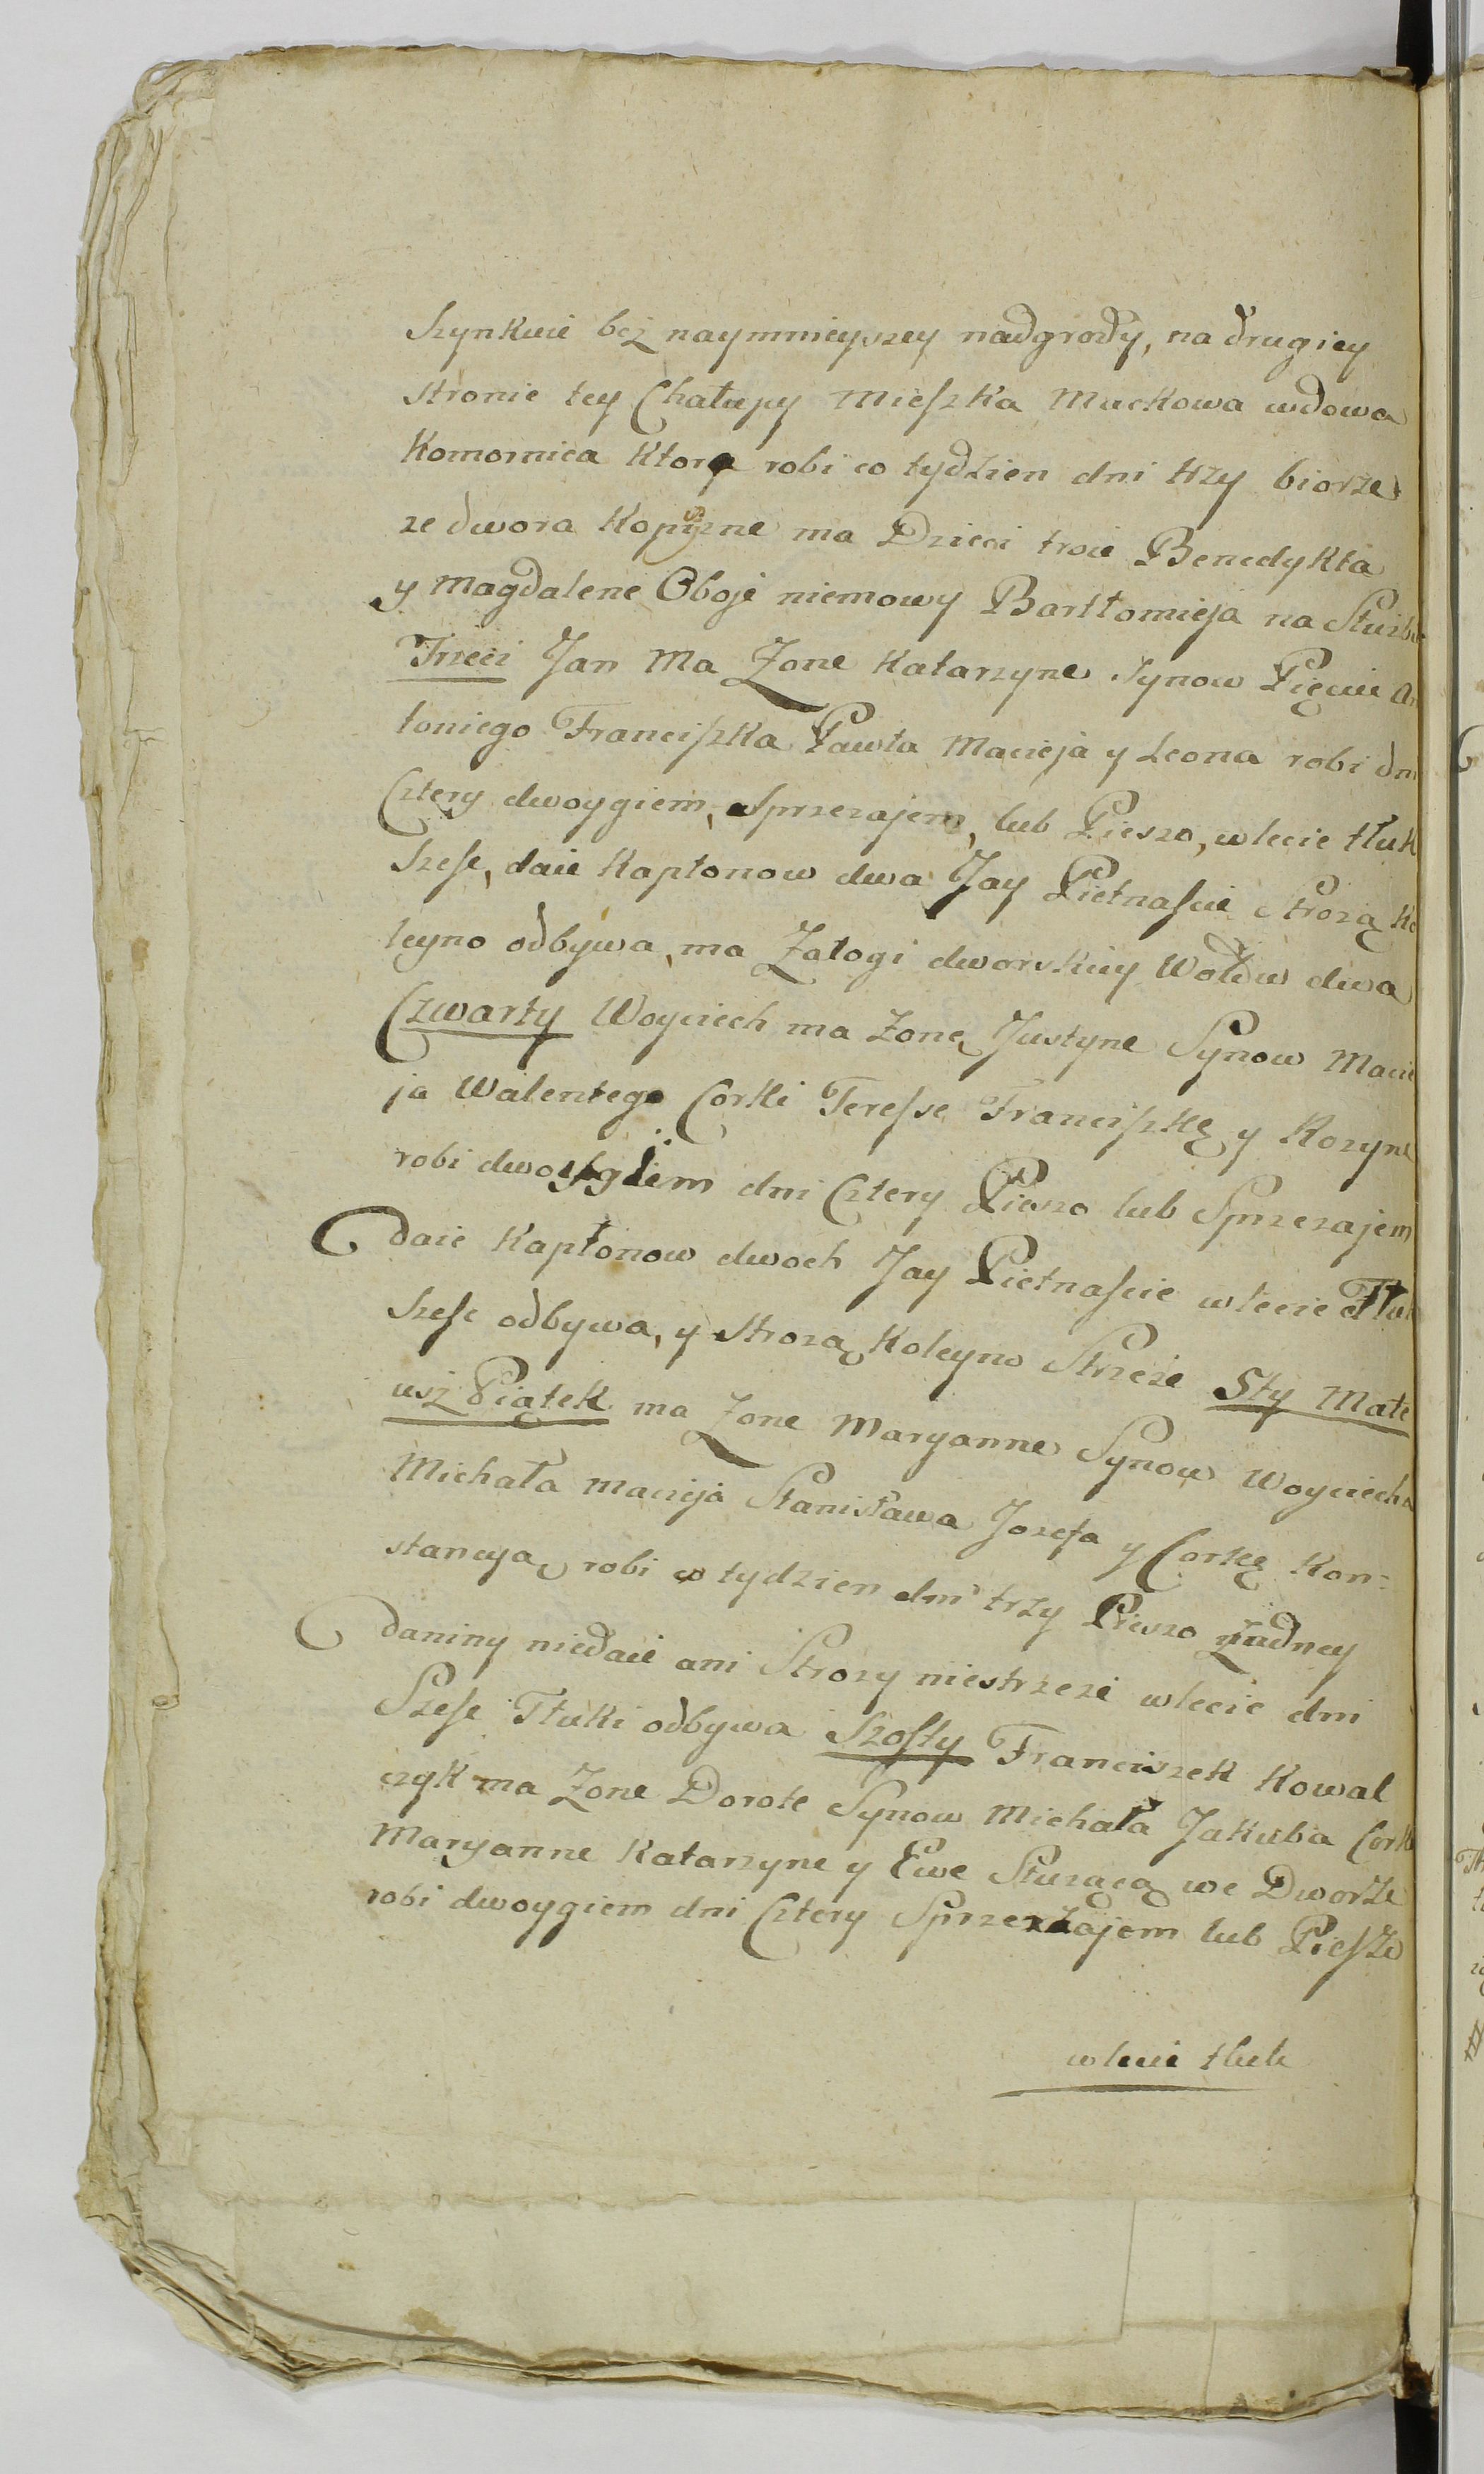 Szynkuie bez naymnieyszey nadgrody, na drugiey
stronie tey Chałupy Mieszka Mackowa wdowa
Komornica Ktora robi co tydzien dni trzy biorze
ze dwora Kopiznę ma Dzieci troie Benedykta
y Magdalene Oboje niemowy Bartłomieja na Służbie
Trzeci Jan Ma Zone Katarzyne Synow Pięciu An
toniego Franciszka Pawła Macieja y Leona robi dni
Cztery dwoygiem, Sprzezajem, lub Pieszo, w lecie tłuk
Szesc, daie Kapłonow dwa Jay Pietnascie Strożą Ko
leyno odbywa, ma Załogi dworskiey Wołów dwa
Czwarty Woyciech ma Zonę Justyne Synow Macie
ja Walentego Corki Teresse Franciszkę y Rozyne
robi dwoygiem dni Cztery Pieszo lub Sprzezajem
daie Kapłonow dwoch Jay Pietnascie w lecie Tłuk
Szesc odbywa, y Strozą Koleyno Strzeze 5ty Mate
usz Piątek ma Zone Maryanne Synow Woyciecha
Michała Macieja Stanisława Jozefa y Corkę Kon=
stancyą robi co tydzien dni trzy Pieszo Zadney
daniny niedaie ani Strozy niestrzeze w lecie dni
Szesc Tłuki odbywa Szosty Franciszek Kowal
czyk ma Zone Dorote Synow Michała Jakuba Corki
Maryanne Katarzyne y Ewe Służącą we Dworze
robi dwoygiem dni Cztery Sprzezajem lub Pieszo
w lecie tłuk